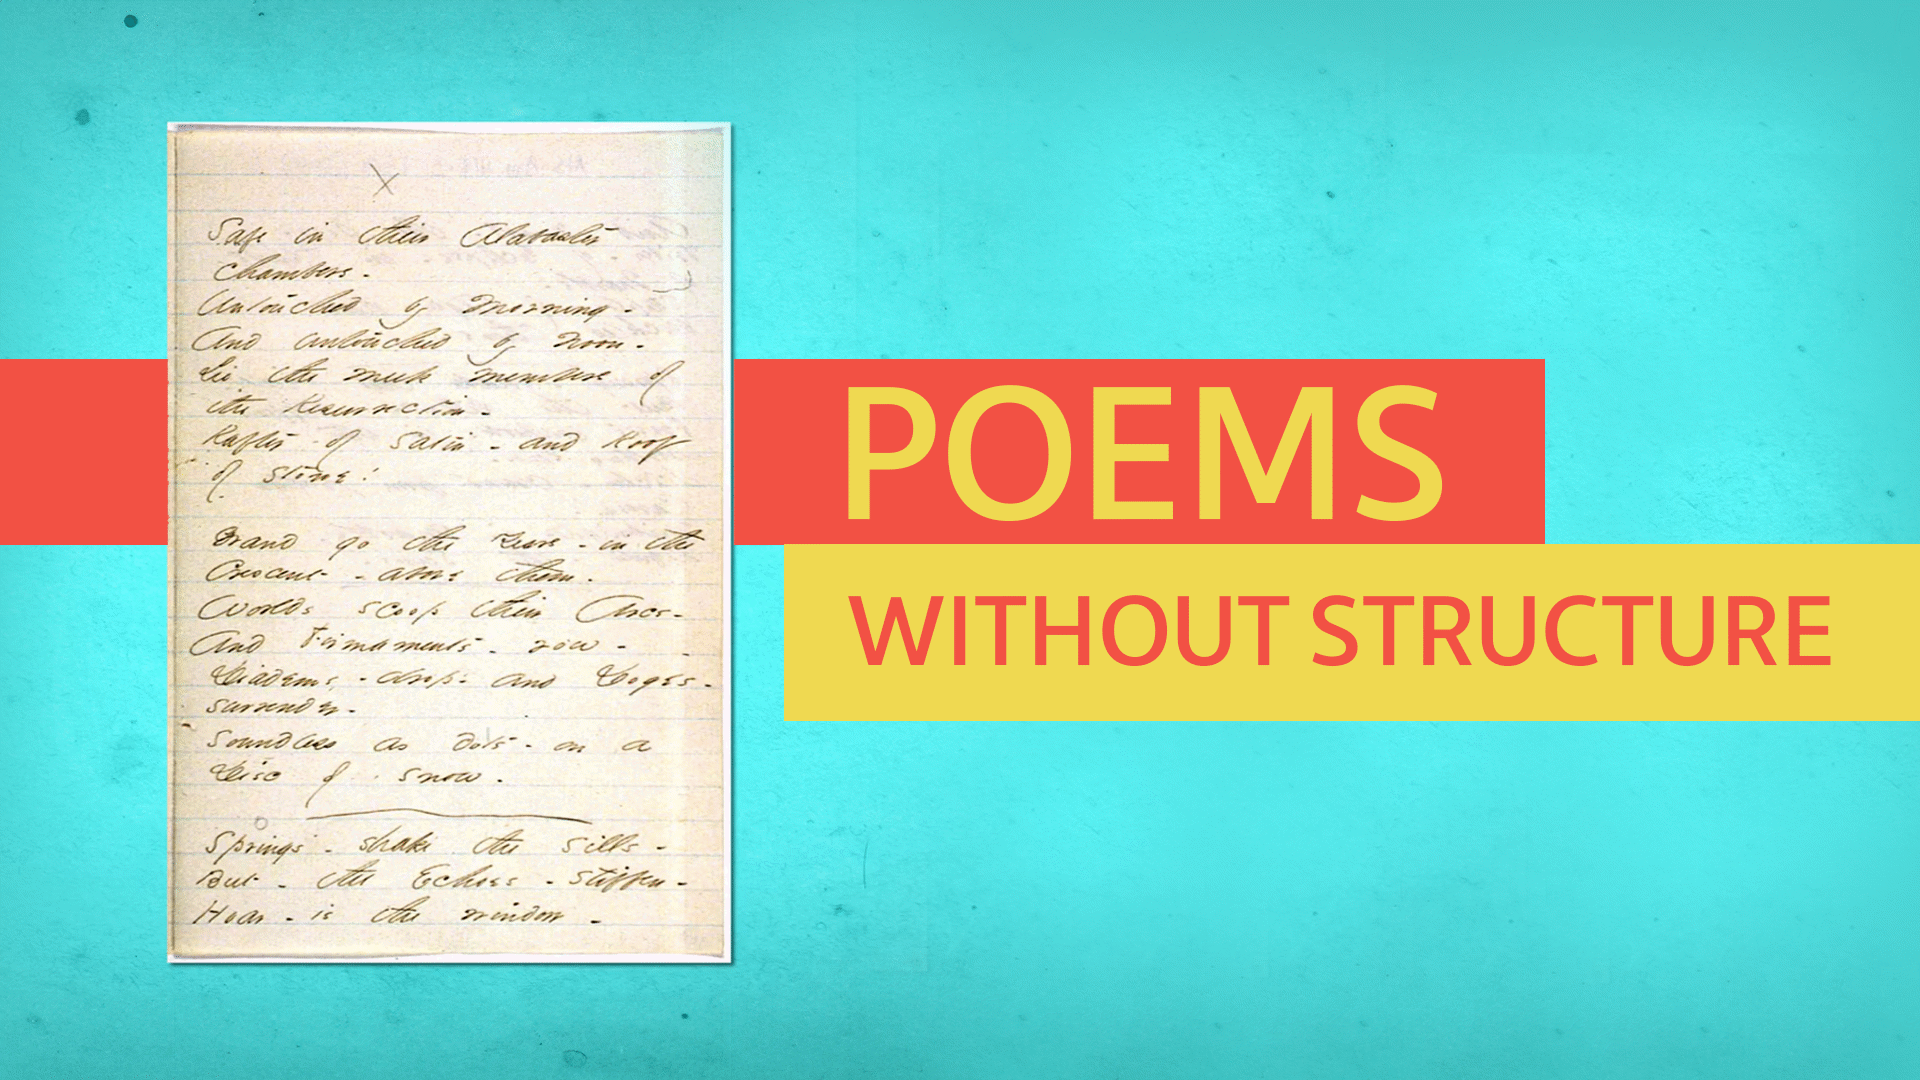 Safe in their Alabaster
Chambers -
Untouched by Morning -
And untouched by Noon -
Lie the meek members of
the Resurrection -
Rafter of Satin - and Roof
of Stone!
Grand go the Years - in the
Crescent - above them -
Worlds scoop their Arcs -
And Firmaments - row -
Diadems - drop - and Doges -
surrender -
Soundless as dots - on a
Disc of snow -
Springs - shake the sills -
But - the Echoes - stiffen -
Hoar - is the window -
POEMS
WITHOUT STRUCTURE